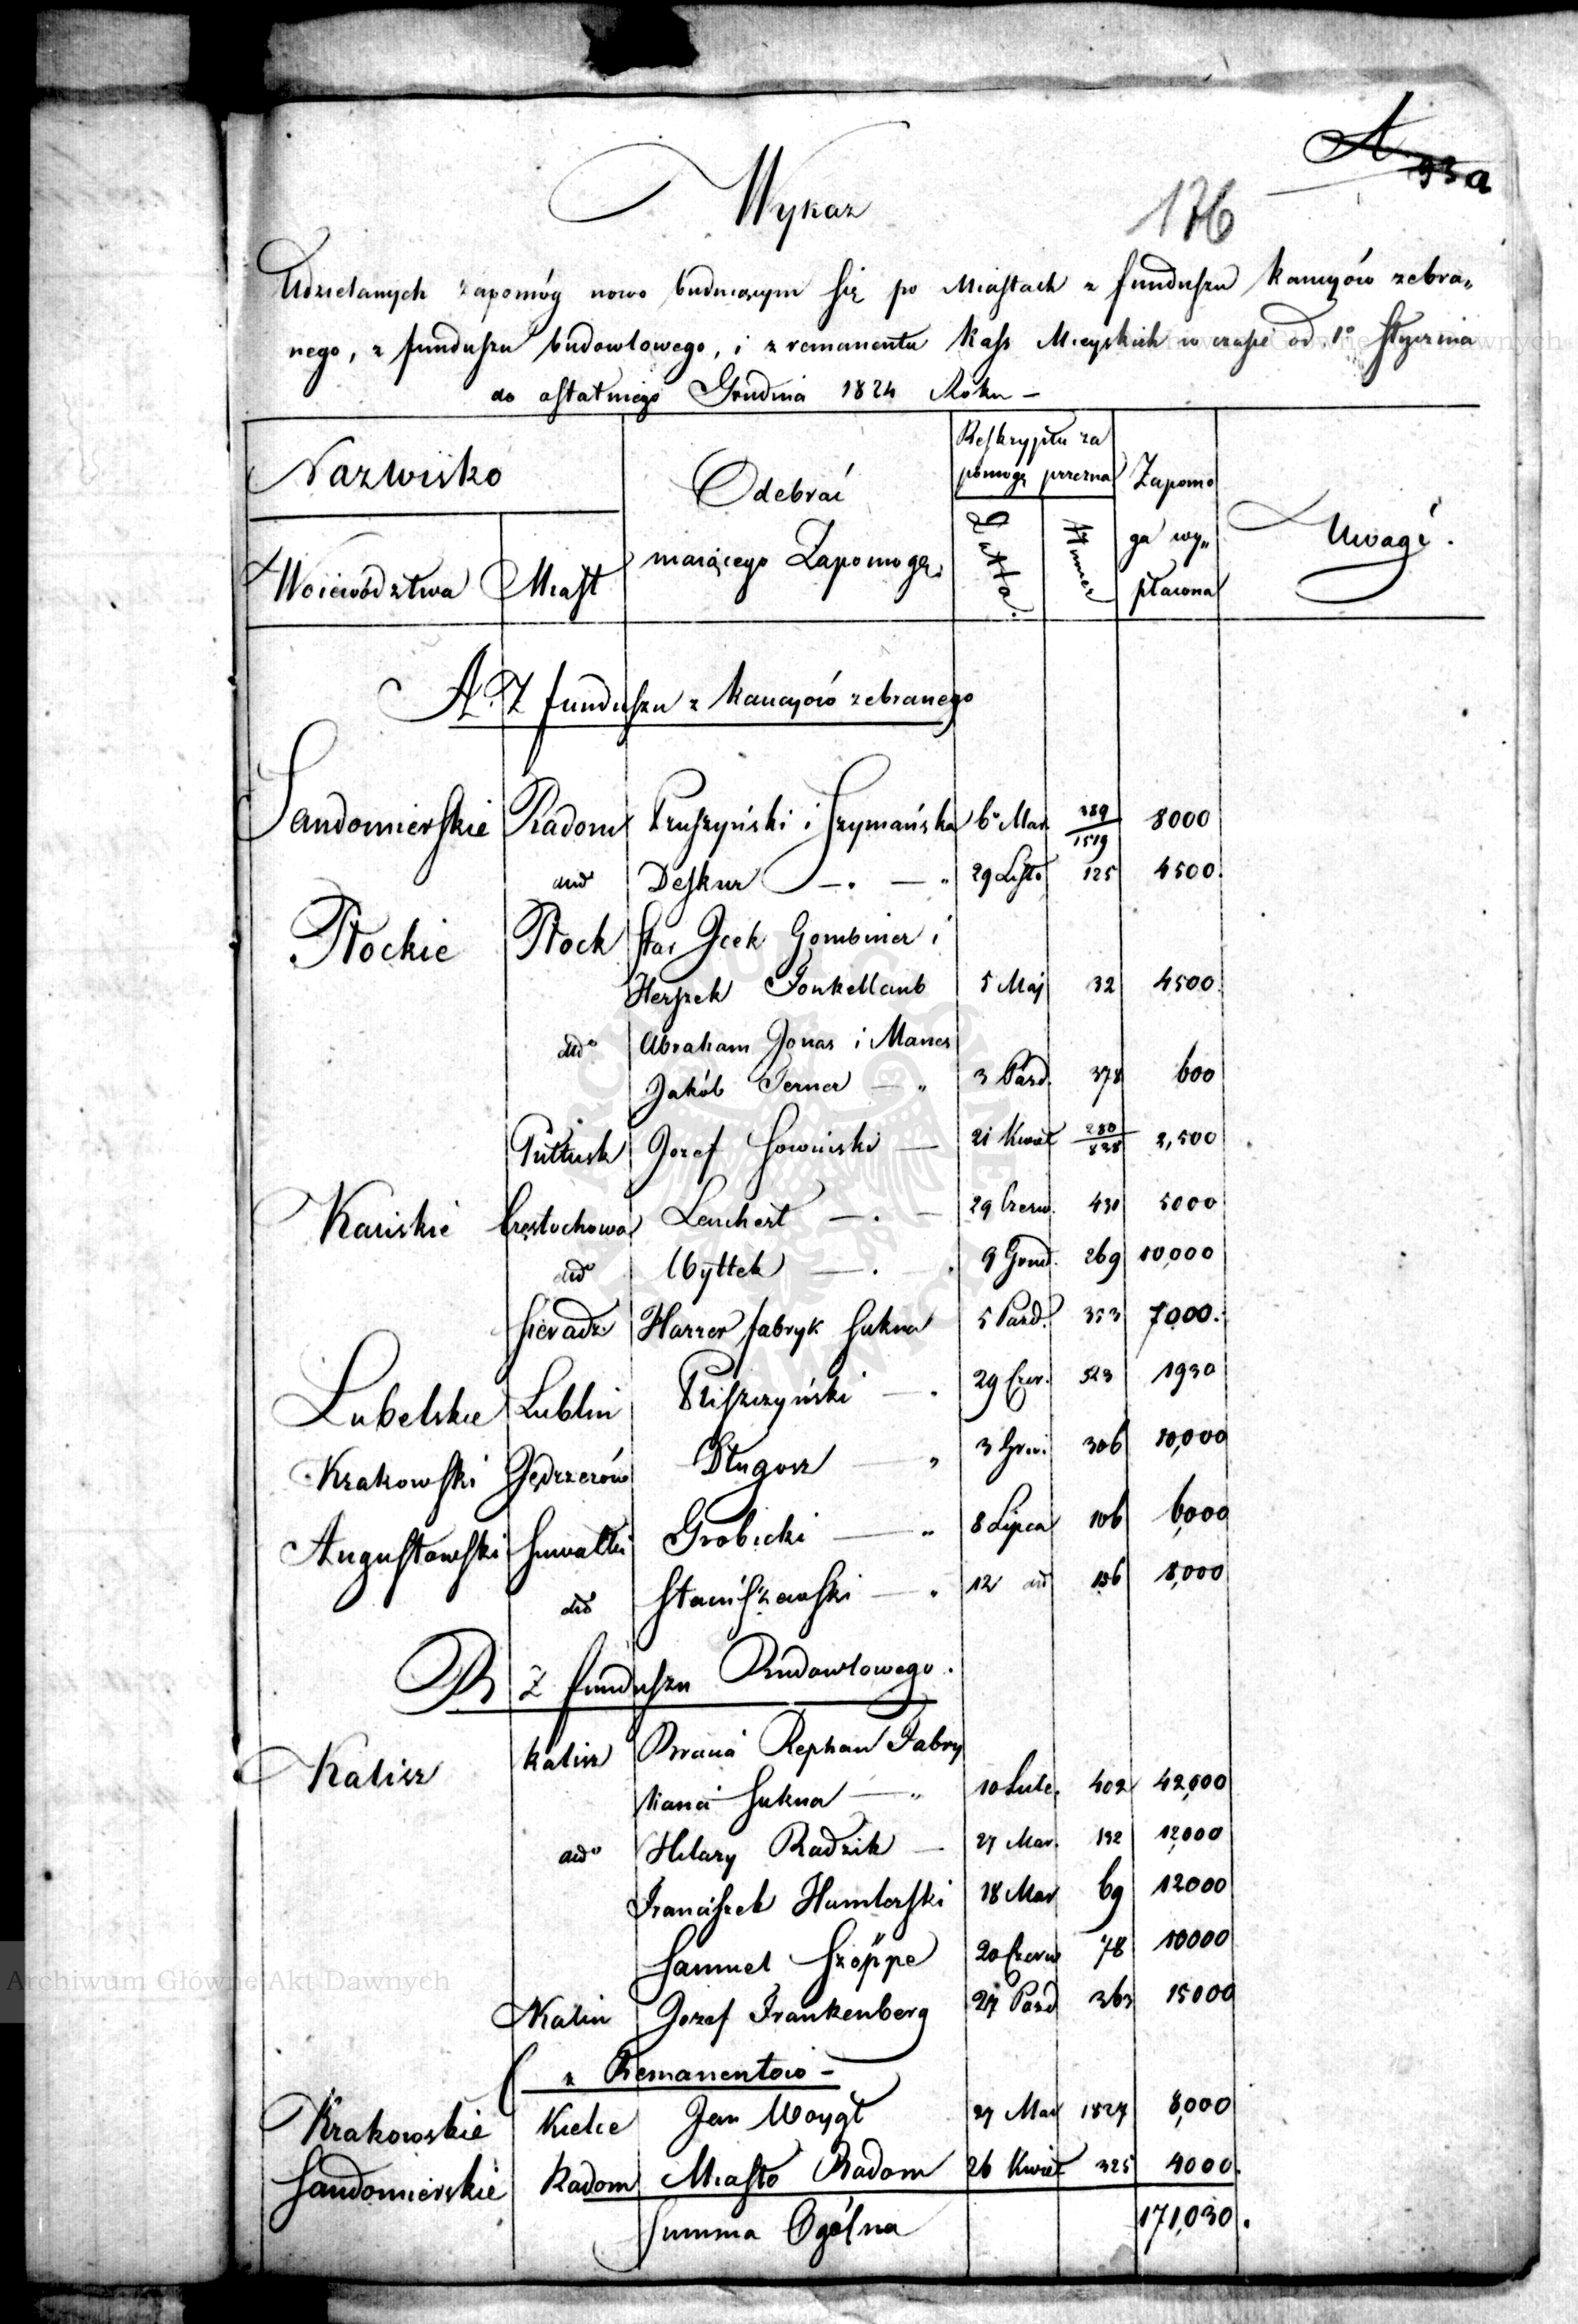 A
93a
176
Wykaz
Udzielanych zapomóg nowo buduiącym się po Miastach z funduszu kaucyów zebra„
nego, z funduszu budowlowego, i z remanentu Kass Mieyskich w czasie od 1o Stycznia
do ostatniego Grudnia 1824 Roku –
Nazwisko
Odebrać maiącego Zapomogę.
Reskryptu za
pomogę przezna
Zapomo
ga wy„
płacona
Uwagi.
Woiewództwa Miast
Datta. Numer
A. Z funduszu z kaucyów zebranego
Sandomierskie Radom Pruszyński i Szymańska 6o Mar. 289/1519 8000
ditto Deskur – . – „ 29 Listo 125 4500.
Płockie Płock Star Icek Gombiner i
Herszek Fonkellaub 5 Maj 32 4500.
ditto Abraham Jonas i Manes
Jakób Terner – „ 3 Pazd. 378 600
Pułtusk Jozef Sowiński – 21 Kwiet 280/828 2,500
Kaliskie Częstochowa Lenchert – . – 29 Czerw. 430 5000
ditto Wyttek – . 9 Grud. 269 10,000
Sieradz Harrer fabryk Sukna 5 Pazd. 353 7000.
Lubelskie Lublin Pliszczyński – . 29 Czer. 523 1930
Krakowski Jędrzeów Długosz – „ 3 Gru. 306 10,000
Augustowski Suwałki Grobicki – „ 8 Lipca 106 6,000
ditto Staniszewski – . 12 dit 156 8,000
B Z funduszu Budowlowego.
Kalisz Kalisz Bracia Rephan Fabry
kanci Sukna – „ 10 Lute. 402 42,000
ditto Hilary Radzik – 27 Mar. 132 12,000
Franciszek Humlerski 18 Mar 69 12000
Samuel Szöppe 20 Czerw 78 10000
Jozef Frankenberg 27 Pazd 363 15000
z Remanentów –
Krakowskie Kielce Jan Woygt 27 Mar 1827 8,000
Sandomierskie Radom Miasto Radom 26 Kwiet 325 4000.
Summa Ogólna 171,030.
Archiwum Główne Akt Dawnych